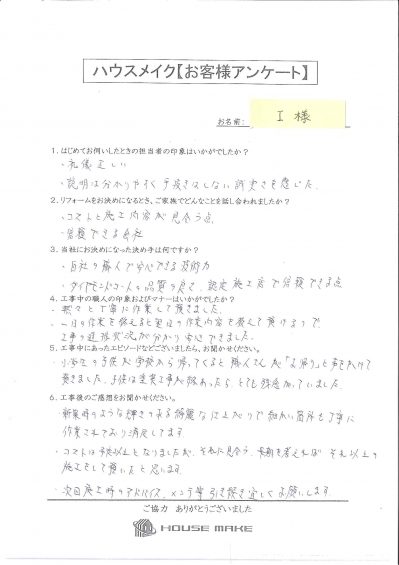 ハウスメイク【お客様アンケート】
お名前: I 様
1. はじめてお伺いしたときの担当者の印象はいかがでしたか?
・礼儀正しい
・説明は分かりやすく手抜きはしない誠実さを感じた。
2. リフォームをお決めになるとき、ご家族でどんなことを話し合われましたか?
・コストと施工内容が見合う点
・信頼できる会社
3. 当社にお決めになった決め手は何ですか?
・自社の職人で安心できる技術力
・ダイヤモンドコートの品質の良さ、認定施工店で信頼できる点
4. 工事中の職人の印象およびマナーはいかがでしたか?
黙々と丁寧に作業して頂きました。
一日の作業を終えると翌日の作業内容を教えて頂けるので
工事の進捗状況が分かり安心できました。
5. 工事中にあったエピソードなどございましたら、お聞かせください。
小学生の子供が学校から帰ってくると職人さんが「お帰り」と声をかけて
頂きました。子供は塗装工事が終わったら とても残念がっていました。
6. 工事後のご感想をお聞かせください。
新築時のような輝きのある綺麗な仕上がりで細かい箇所も丁寧に
作業されており満足してます。
・コストは予想以上となりましたが、それに見合う、長期を考えれば それ以上の
施工をして頂いたと思います。
・次回屋上時のアドバイス、メンテ等 引き続き宜しくお願いします。
ご協力 ありがとうございました
HOUSE MAKE